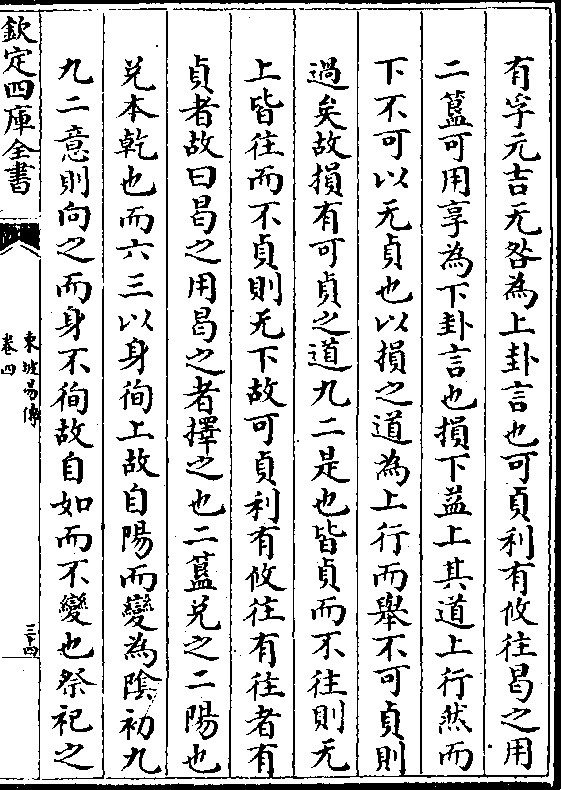 有孚元吉无咎為上卦言也可貞利有攸往曷之用
二簋可用享為下卦言也損下益上其道上行然而
下不可以无貞也以損之道為上行而舉不可貞則
過矣故損有可貞之道九二是也皆貞而不往則无
上皆往而不貞則无下故可貞利有攸往有往者有
貞者故曰曷之用曷之者擇之也二簋兑之二陽也
兑本乾也而六三以身徇上故自陽而變為隂初九
九二意則向之而身不徇故自如而不變也祭祀之
欽定四庫全書
東坡易傳
卷四
三十四